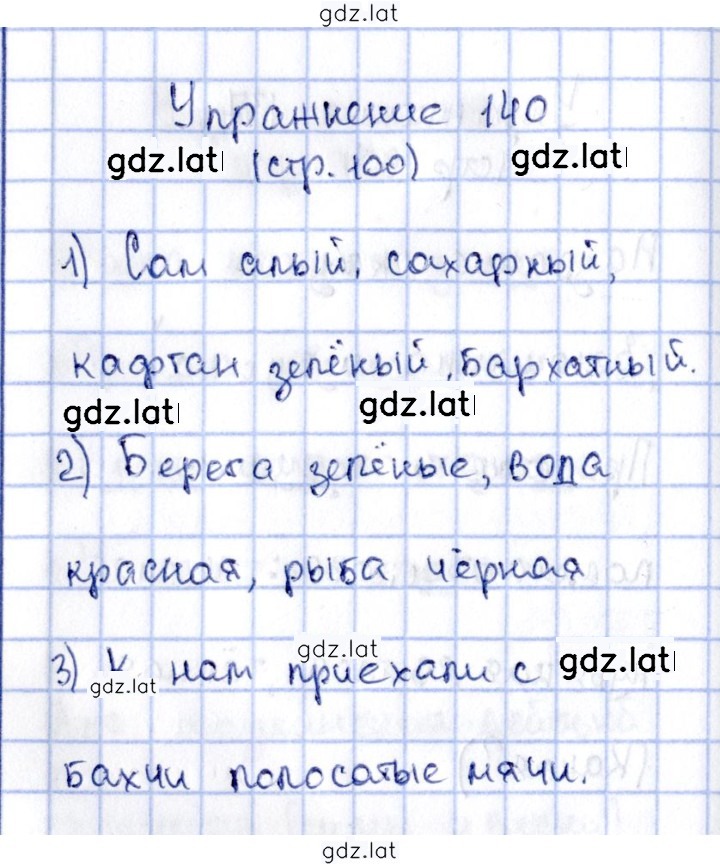 gdz.lat
Упражнение 140
gdz.lat (стр. 100) gdz.lat
1) Сам алый, сахарный,
кафтан зелёный, бархатный.
gdz.lat gdz.lat
2) Берега зелёные, вода
красная, рыба чёрная
gdz.lat
3) К нам приехали с gdz.lat
gdz.lat
бахчи полосатые мячи.
gdz.lat